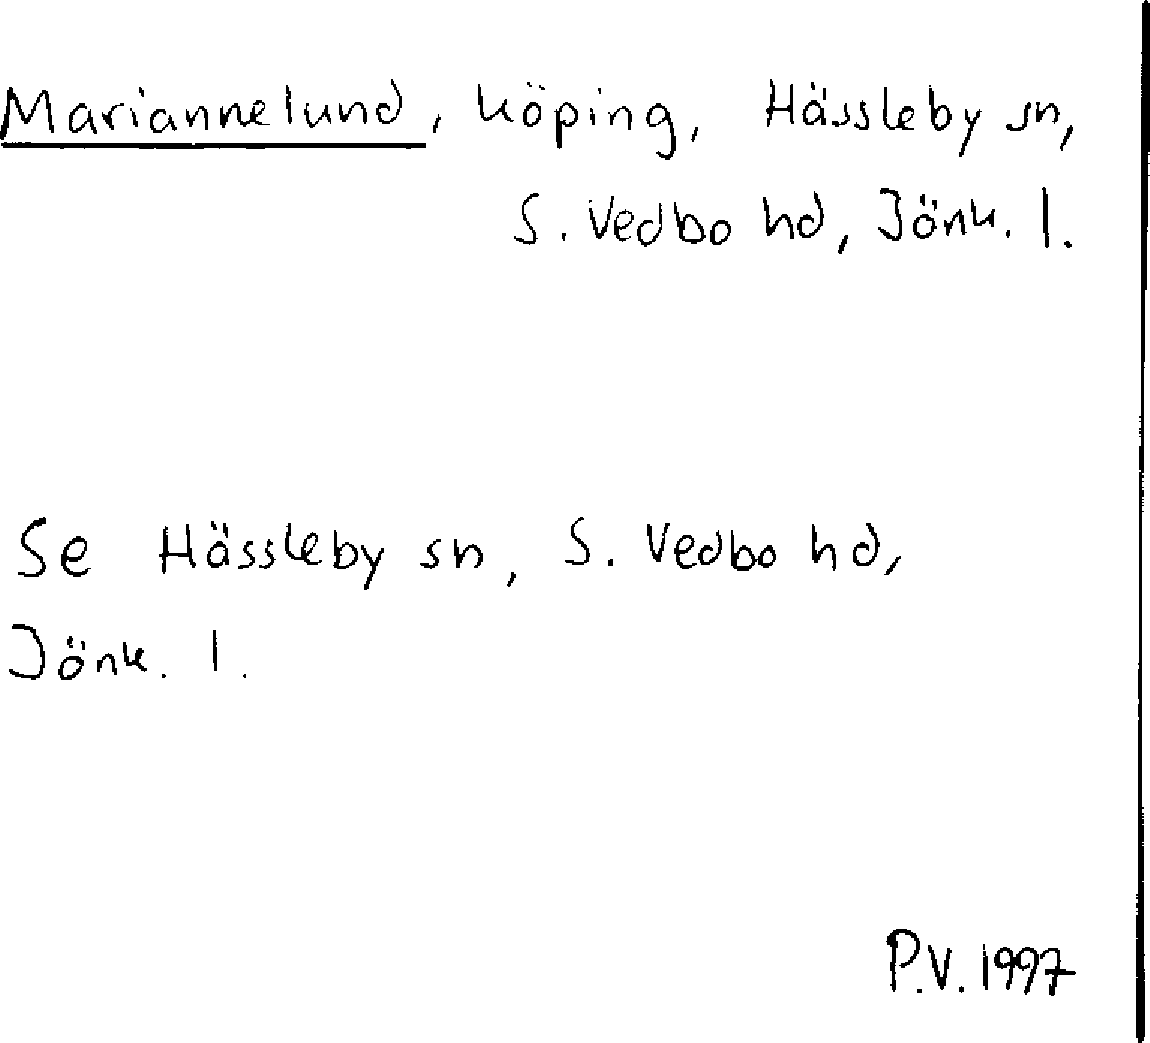 Mariannelund, köping, Hässleby sn,
S. Vedbo hd, Jönk. l.
Se Hässleby sn, S. Vedbo hd,
Jönk. l.
P.V. 1997